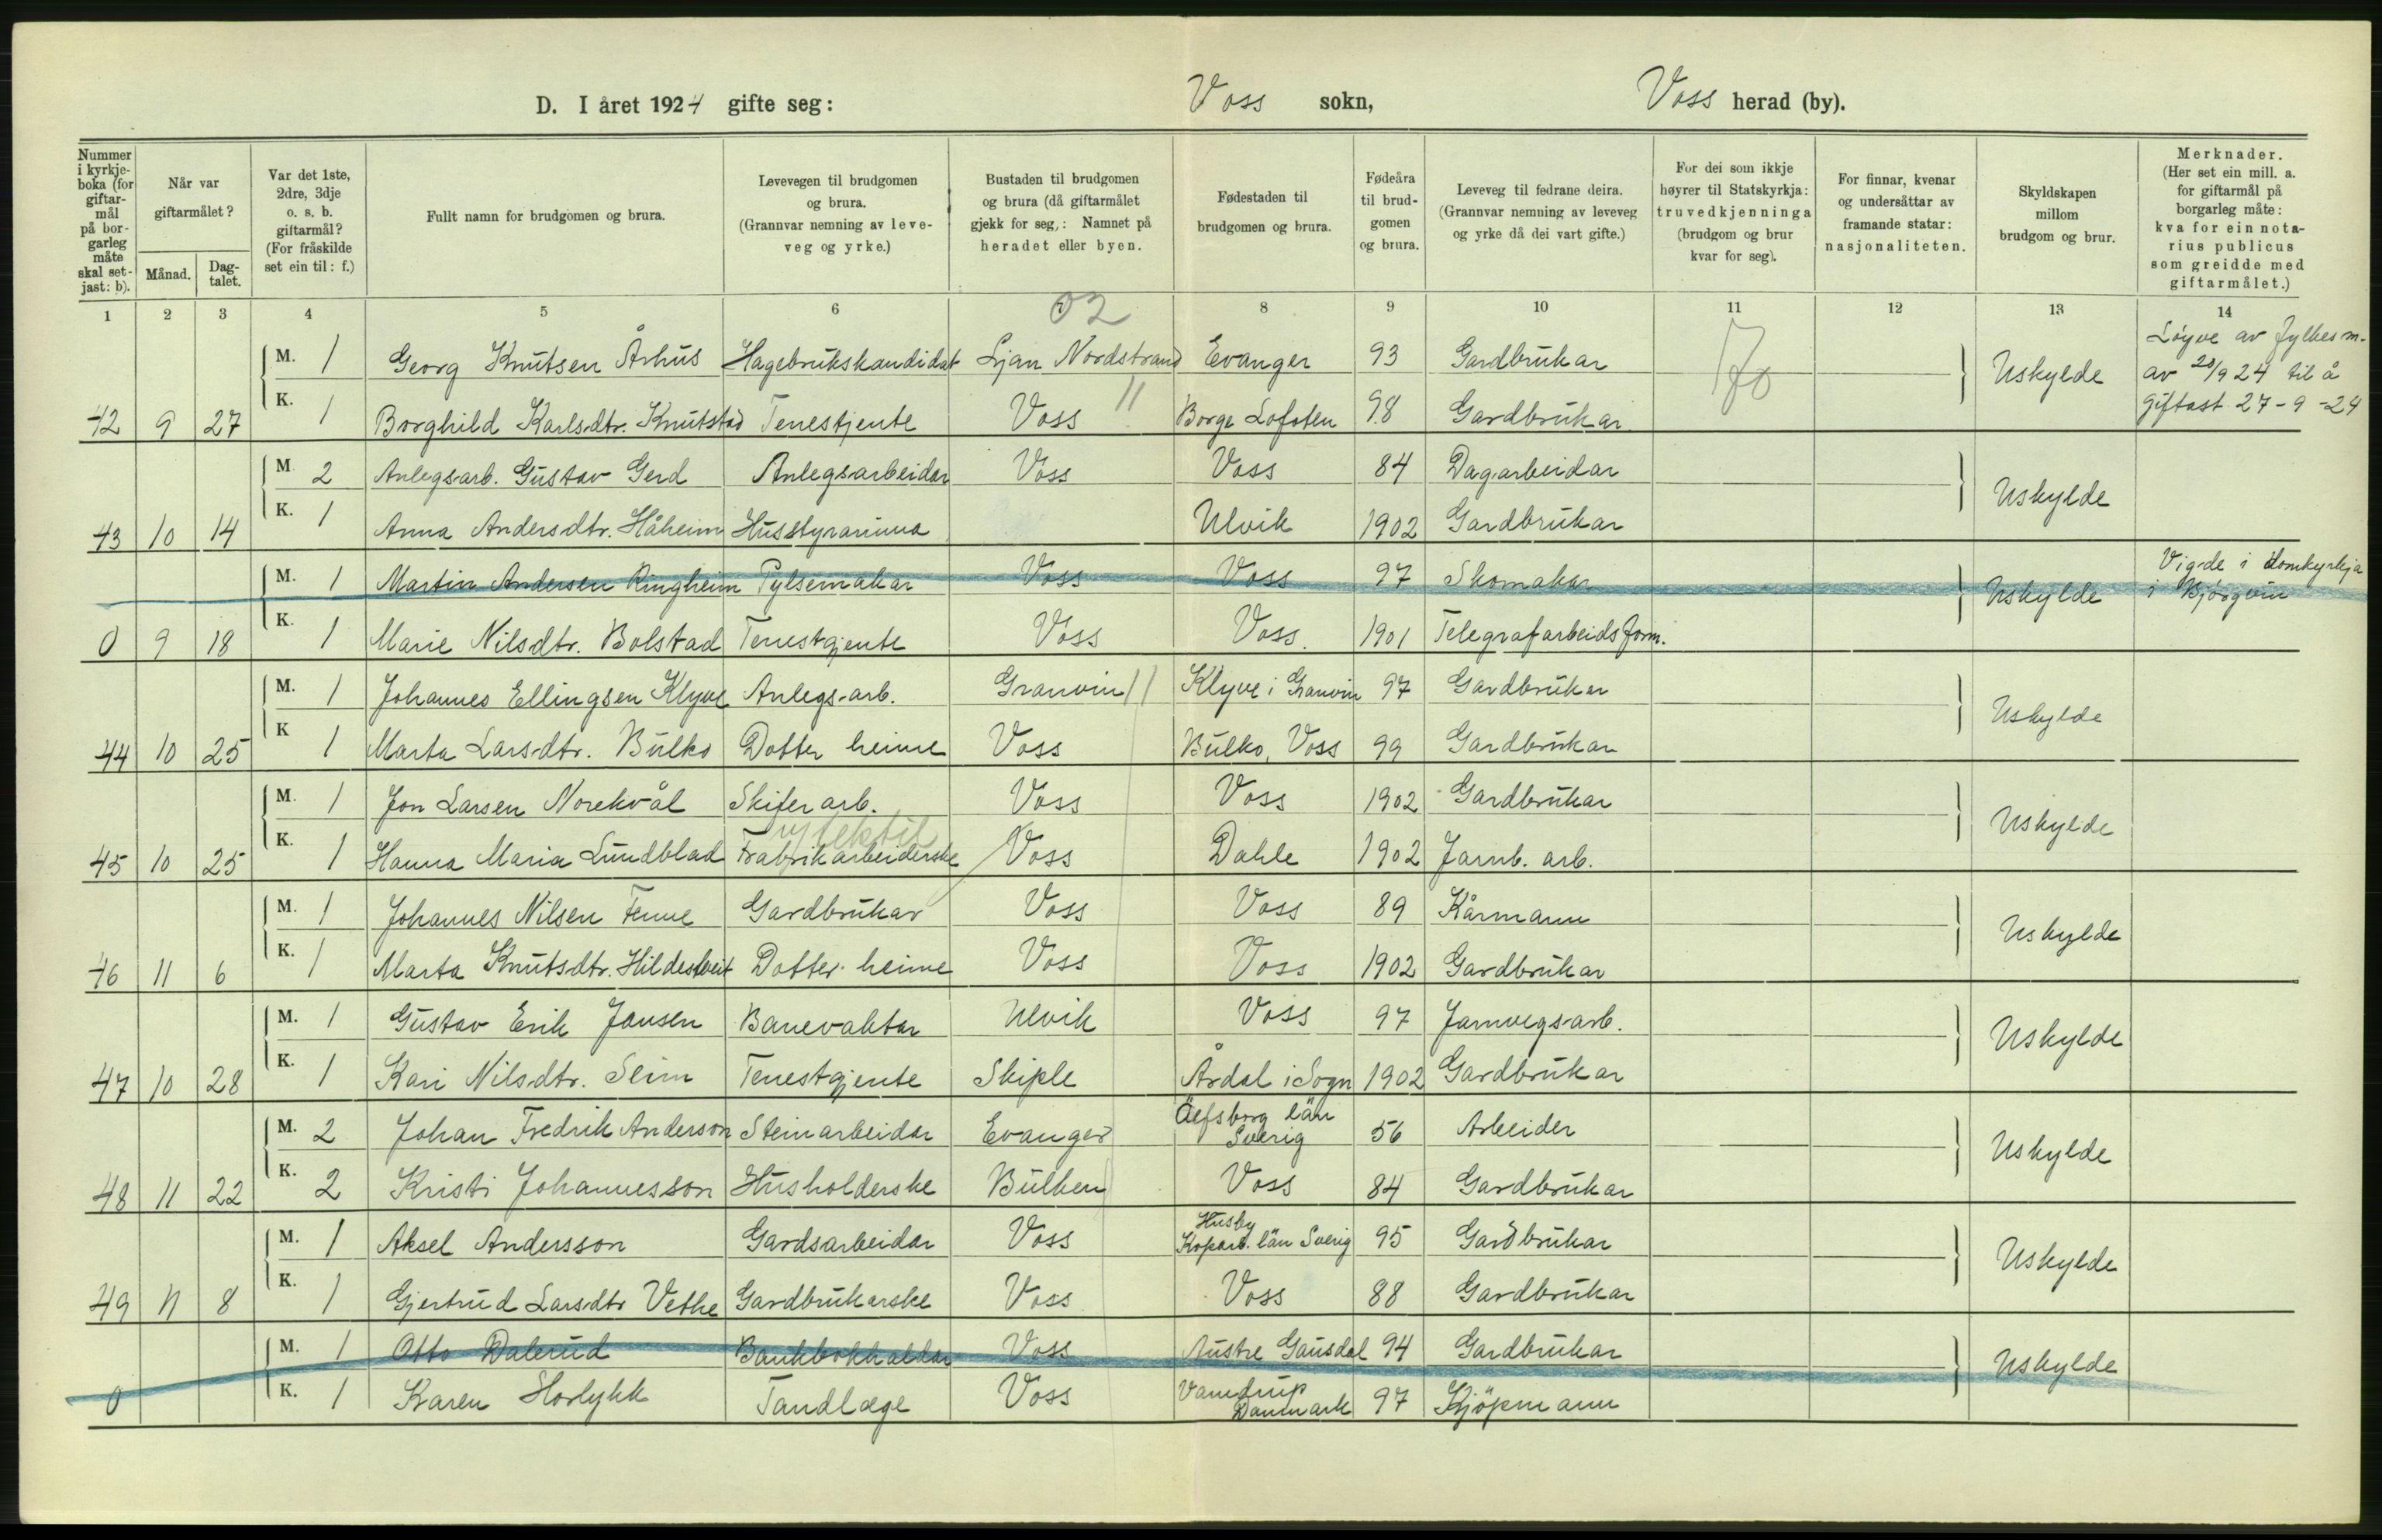 D. I året 1924 gifte seg: Voss sokn, Voss herad (by).
Nummer i kyrkje-boka (for giftar-mål på bor-garleg måte skal set-jast: b).
Når var giftarmålet?
Månad.
Dag-talet.
Var det 1ste, 2dre, 3dje o. s. b. giftarmål? (For fråskilde set ein til: f.)
Fullt namn for brudgomen og brura.
Levevegen til brudgomen og brura. (Grannvar nemning av leve-veg og yrke.)
Bustaden til brudgomen og brura (då giftarmålet gjekk for seg,: Namnet på heradet eller byen.
Fødestaden til brudgomen og brura.
Fødeåra til brud-gomen og brura.
Leveveg til fedrane deira. (Grannvar nemning av leveveg og yrke då dei vart gifte.)
For dei som ikkje høyrer til Statskyrkja: truvedkjenninga (brudgom og brur kvar for seg).
For finnar, kvenar og undersåttar av framande statar: nasjonaliteten.
Skyldskapen millom brudgom og brur.
Merknader. (Her set ein mill. a. for giftarmål på borgarleg måte: kva for ein nota-rius publicus som greidde med giftarmålet.)
1 2 3 4 5 6 02 8 9 10 11 12 13 14
M. 1 Georg Knutsen Århus Hagebrukskandidat Ljan Nordstrand Evanger 93 Gardbrukar Uskylde Løyve av fylkesm. av 20/9 24 til å giftast 27-9-24
42 9 27 K. 1 Borghild Karlsdtr. Knutstad Tenestjente Voss 11 Borge Lofoten 98 Gardbrukar
M 2 Anlegsarb. Gustav Gerd Anlegsarbeidar Voss Voss 84 Dagarbeidar Uskylde
43 10 14 K. 1 Anna Andersdtr. Håheim Husstyrarinna Ulvik 1902 Gardbrukar
M. 1 Martin Andersen Ringheim Pylsemakar Voss Voss 97 Skomakar Uskylde Vigde i domkyrkja i Bjørgvin
0 9 18 K. 1 Marie Nilsdtr. Bolstad Tenestgjente Voss Voss. 1901 Telegrafarbeidsform.
M. 1 Johannes Ellingsen Klyve Anlegs-arb. Granvin 11 Klyve i Granvin 97 Gardbrukar Uskylde
44 10 25 K 1 Marta Larsdtr. Bulko Dotter heime Voss Bulko, Voss 99 Gardbrukar
M. 1 Jon Larsen Norekvål Skifer arb. Voss Voss 1902 Gardbrukar Uskylde
45 10 25 K. 1 Hanna Maria Lundblad Fabrikarbeiderske Voss Dahle 1902 Jarnb. arb.
M. 1 Johannes Nilsen Fenne Gardbrukar Voss Voss 89 Kårmann Uskylde
46 11 6 K. 1 Marta Knutsdtr. Hildestveit Dotter heime Voss Voss 1902 Gardbrukar
M. 1 Gustav Erik Jansen Banevaktar Ulvik Voss 97 Jarnvegsarb. Uskylde
47 10 28 K. 1 Kari Nilsdtr. Seim Tenestgjente Skiple Årdal i Sogn 1902 Gardbrukar
M. 2 Johan Fredrik Anderson Steinarbeidar Evanger Äelfsborg län Sverig 56 Arbeider Uskylde
48 11 22 K. 2 Kristi Johannesson Husholderske Bulken Voss 84 Gardbrukar
M. 1 Aksel Andersson Gardsarbeidar Voss Husby Koparb. län Sverig 95 Gardbrukar Uskylde
49 11 8 K. 1 Gjertrud Larsdtr Vethe Gardbrukarske Voss Voss 88 Gardbrukar
M. 1 Otto Dalerud Bankbokhaldar Voss Austre Gausdal 94 Gardbrukar Uskylde
0 K. 1 Karen Horlykk Tandlæge Voss Vamdrup Danmark 97 Kjöpmann